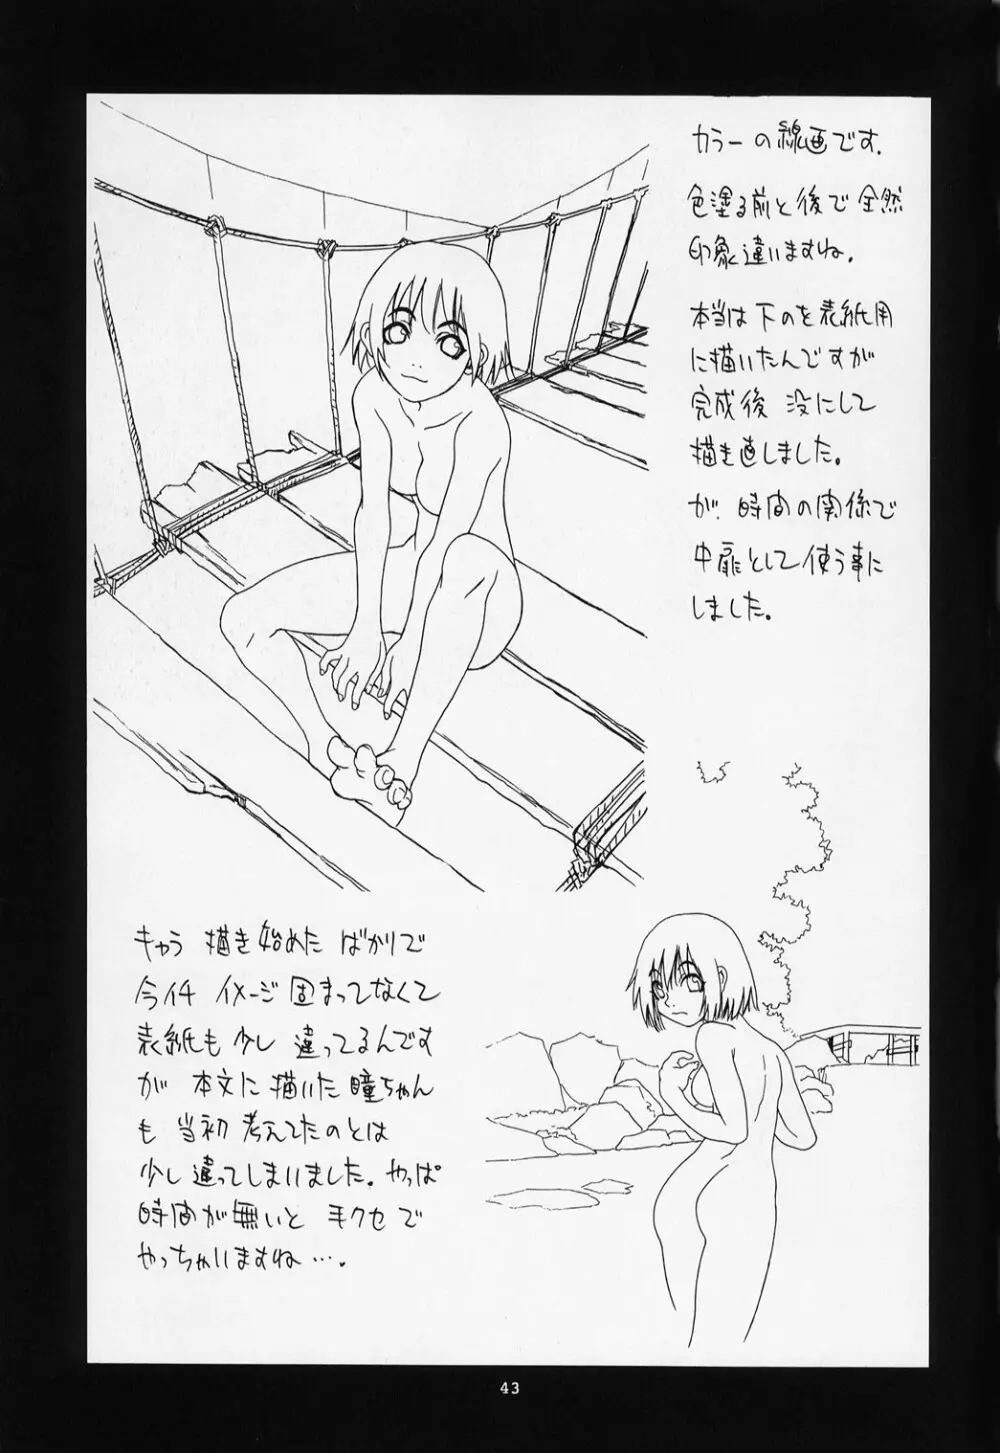 カラーの線画です.
色塗る前と後で全然
印象違いますね.
本当は下のを表紙用
に描いたんですが
完成後 没にして
描き直しました。
が、時間の関係で
中扉として使う事に
しました。
キャラ 描き始めた ばかりで
今イチ イメージ 固まってなくて
表紙も 少し 違ってるんです
が 本文に 描いた 瞳ちゃん
も 当初 考えてたのとは
少し違ってしまいました。やっぱ
時間が無いと 手クセで
やっちゃいますね….
43